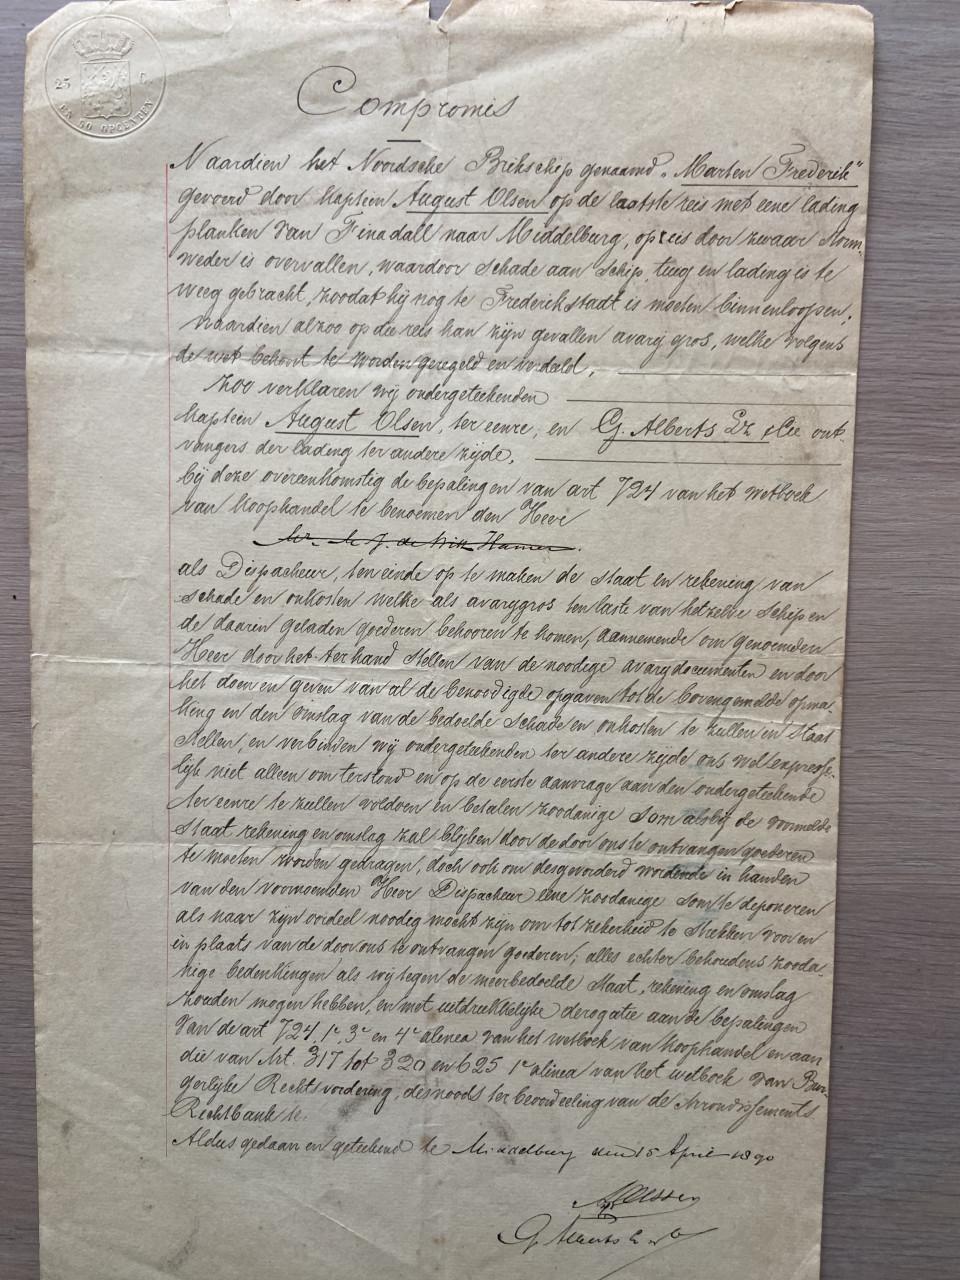 25 C.
EN 50 OPCENTEN
Compromis
Naardien het Noordsche Brikschip genaamd „Marten Frederik"
gevoerd door Kaptein August Olsen op de laatste reis met eene lading
planken van naar Middelburg, op reis door zwaar storm„
weder is overvallen, waardoor schade aan schip, tuig en lading is te
weeg gebracht, zoodat hij nog te Frederikstadt is moeten binnenloopen;
naardien alzoo op die reis kan zijn gevallen avarij gros, welke volgens
de wet behoort te worden geregeld en verdeeld,
zoo verklaren wij ondergeteekenden
Kaptein August Olsen, ter eenre, en G. Alberts Lz & Cie ont„
vangers der lading ter andere zijde,
bij deze overeenkomstig de bepalingen van art 724 van het wetboek
van Koophandel te benoemen den Heer
Mr. J. de Witt Hamer.
als Dispacheur, ten einde op te maken de staat en rekening van
schade en onkosten welke als avarygros ten laste van hetzelve schip en
de daarin geladen goederen behooren te komen, aannemende om genoemden
Heer door het ter hand stellen van de noodige avarydocumenten en door
het doen en geven van al de benoodigde opgaven tot de bovengemelde opma„
king en den omslag van de bedoelde schade en onkosten te zullen in staat
stellen, en verbinden wij ondergeteekenden ter andere zijde ons wel expresse„
lijk niet alleen om terstond en op de eerste aanvrage aan den ondergeteekende
ter eenre te zullen voldoen en betalen zoodanige som als bij de voormelde
staat rekening en omslag zal blijken door de door ons te ontvangen goederen
te moeten worden gedragen, doch ook om desgevorderd wordende in handen
van den voornoemden Heer Dispacheur eene zoodanige som te deponeren
als naar zijn oordeel noodig mocht zijn om tot zekerheid te strekken voor en
in plaats van de door ons te ontvangen goederen; alles echter behoudens zooda„
nige bedenkingen als wij tegen de meerbedoelde staat, rekening en omslag
zouden mogen hebben, en met uitdrukkelijke derogatie aan de bepalingen
van de art 724, 1e, 3e en 4e alinea van het wetboek van Koophandel en aan
die van Art. 317 tot 320 en 625 1e alinea van het wetboek van Bur„
gerlijke Rechtsvordering, desnoods ter beoordeeling van de Arrondissements
Rechtbank te.
Aldus gedaan en geteekend te Middelburg den 15 April 1890
A Olssen
G Alberts Lz & Co